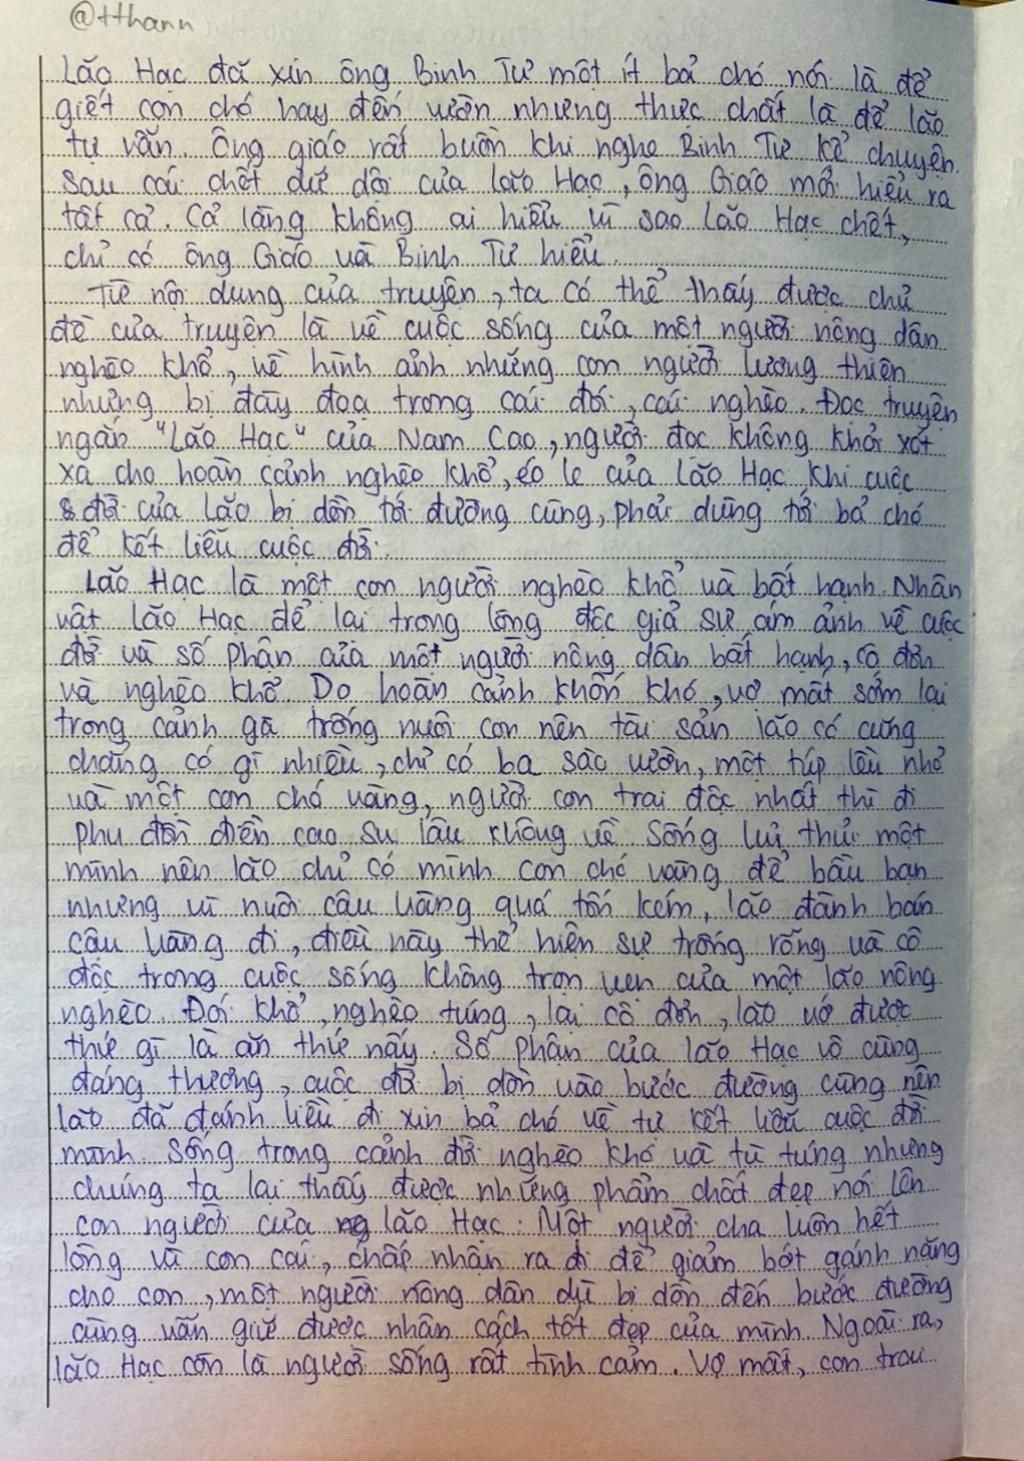 @tthann
Lão Hạc đã xin ông Binh Tư một ít bả chó nói là để
giết con chó hay đến vườn nhưng thực chất là để lão
tự vẫn. Ông giáo rất buồn khi nghe Binh Tư kể chuyện.
Sau cái chết dữ dội của lão Hạc, ông Giáo mới hiểu ra
tất cả. Cả làng không ai hiểu vì sao lão Hạc chết,
chỉ có ông Giáo và Binh Tư hiểu.
Từ nội dung của truyện, ta có thể thấy được chủ
đề của truyện là về cuộc sống của một người nông dân
nghèo khổ, về hình ảnh những con người lương thiện
nhưng bị đày đoạ trong cái đói, cái nghèo. Đọc truyện
ngắn "Lão Hạc" của Nam Cao, người đọc không khỏi xót
xa cho hoàn cảnh nghèo khổ, éo le của lão Hạc khi cuộc
đời của lão bị dồn tới đường cùng, phải dùng tới bả chó
để kết liễu cuộc đời.
Lão Hạc là một con người nghèo khổ và bất hạnh. Nhân
vật lão Hạc để lại trong lòng độc giả sự ám ảnh về cuộc
đời và số phận của một người nông dân bất hạnh, cô đơn
và nghèo khổ. Do hoàn cảnh khốn khó, vợ mất sớm lại
trong cảnh gà trống nuôi con nên tài sản lão có cũng
chẳng có gì nhiều, chỉ có ba sào vườn, một túp lều nhỏ
và một con chó vàng, người con trai độc nhất thì đi
phu đồn điền cao su lâu không về. Sống lủi thủi một
mình nên lão chỉ có mình con chó vàng để bầu bạn
nhưng vì nuôi cậu Vàng quá tốn kém, lão đành bán
cậu Vàng đi, điều này thể hiện sự trống rỗng và cô
độc trong cuộc sống không trọn vẹn của một lão nông
nghèo. Đói khổ, nghèo túng, lại cô đơn, lão vớ được
thứ gì là ăn thứ nấy. Số phận của lão Hạc vô cùng
đáng thương, cuộc đời bị dồn vào bước đường cùng nên
lão đã đánh liều đi xin bả chó về tự kết liễu cuộc đời
mình. Sống trong cảnh đời nghèo khó và tù túng nhưng
chúng ta lại thấy được những phẩm chất đẹp nói lên
con người của lão Hạc: Một người cha luôn hết
lòng vì con cái, chấp nhận ra đi để giảm bớt gánh nặng
cho con, một người nông dân dù bị dồn đến bước đường
cùng vẫn giữ được nhân cách tốt đẹp của mình. Ngoài ra,
lão Hạc còn là người sống rất tình cảm. Vợ mất, con trai